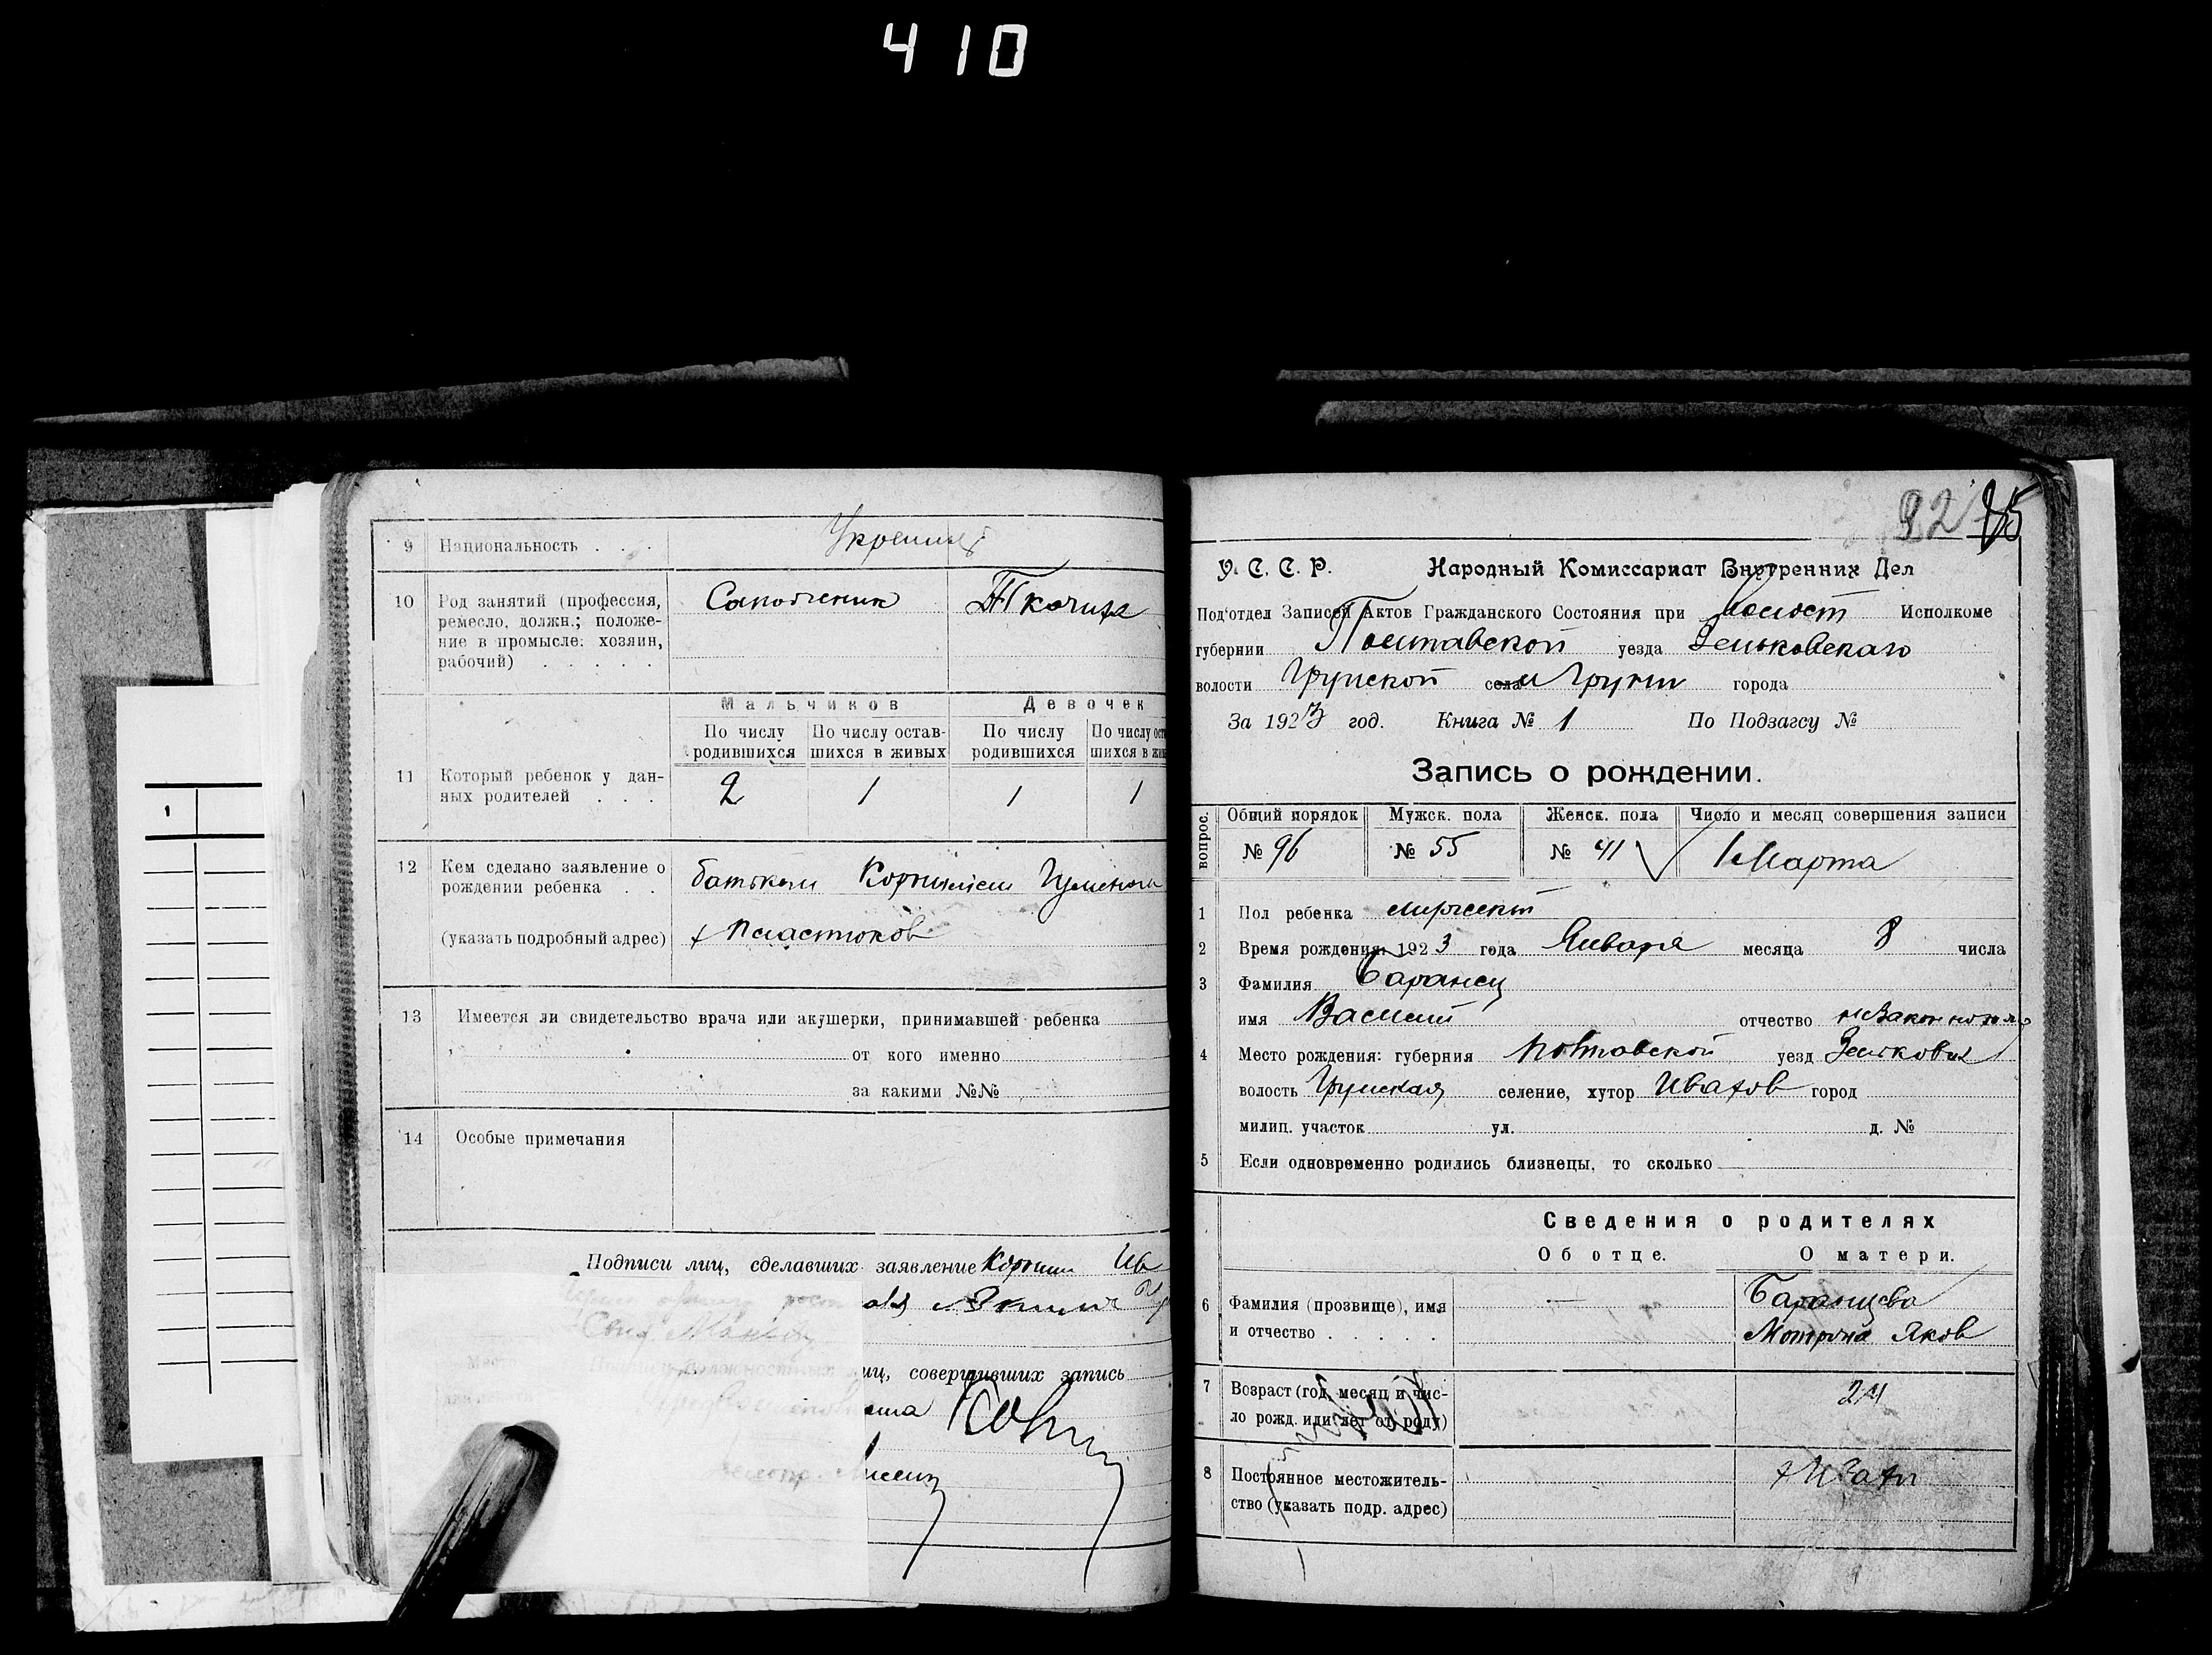 410
9 Национальность . . . Украинцы
10 Род занятий (профессия,
ремесло, должн.; положе-
ние в промысле: хозяин,
рабочий) . . . . .
Сапожник Ткачиха
Мальчиков Девочек
По числу родившихся По числу остав-шихся в живых По числу родившихся По числу
11 Который ребенок у дан-
ных родителей . . .
2 1 1 1
12 Кем сделано заявление о
рождении ребенка . .
батьком
(указать подробный адрес) х Пластюков
13 Имеется ли свидетельство врача или акушерки, принимавшей ребенка
от кого именно
за какими №№
14 Особые примечания
Подписи лиц, сделавших заявление
лиц, совершивших запись
1
82 85
У. С. С. Р. Народный Комиссариат Внутренних Дел
Под'отдел Записей Актов Гражданского Состояния при Волост Исполкоме
губернии Полтавской уезда Зеньковскаго
волости Грунской села м Грунь города
За 1923 год. Книга № 1 По Подзагсу №
Запись о рождении.
вопрос. Общий порядок Мужск. пола Женск. пола Число и месяц совершения записи
№ 96 № 55 № 41 1 Марта
1 Пол ребенка мужской
2 Время рождения: 1923 года Января месяца 8 числа
3 Фамилия Баранец
имя Василий отчество
4 Место рождения: губерния Полтавской уезд
волость Грунская селение, хутор Ивахов город
милиц. участок ул. д. №
5 Если одновременно родились близнецы, то сколько
Сведения о родителях
Об отце. О матери.
6 Фамилия (прозвище), имя
и отчество . . . . .
— Баранцева
Мотрона Яков
7 Возраст (год, месяц и чис-
ло рожд. или лет от роду)
24
8 Постоянное местожитель-
ство (указать подр. адрес)